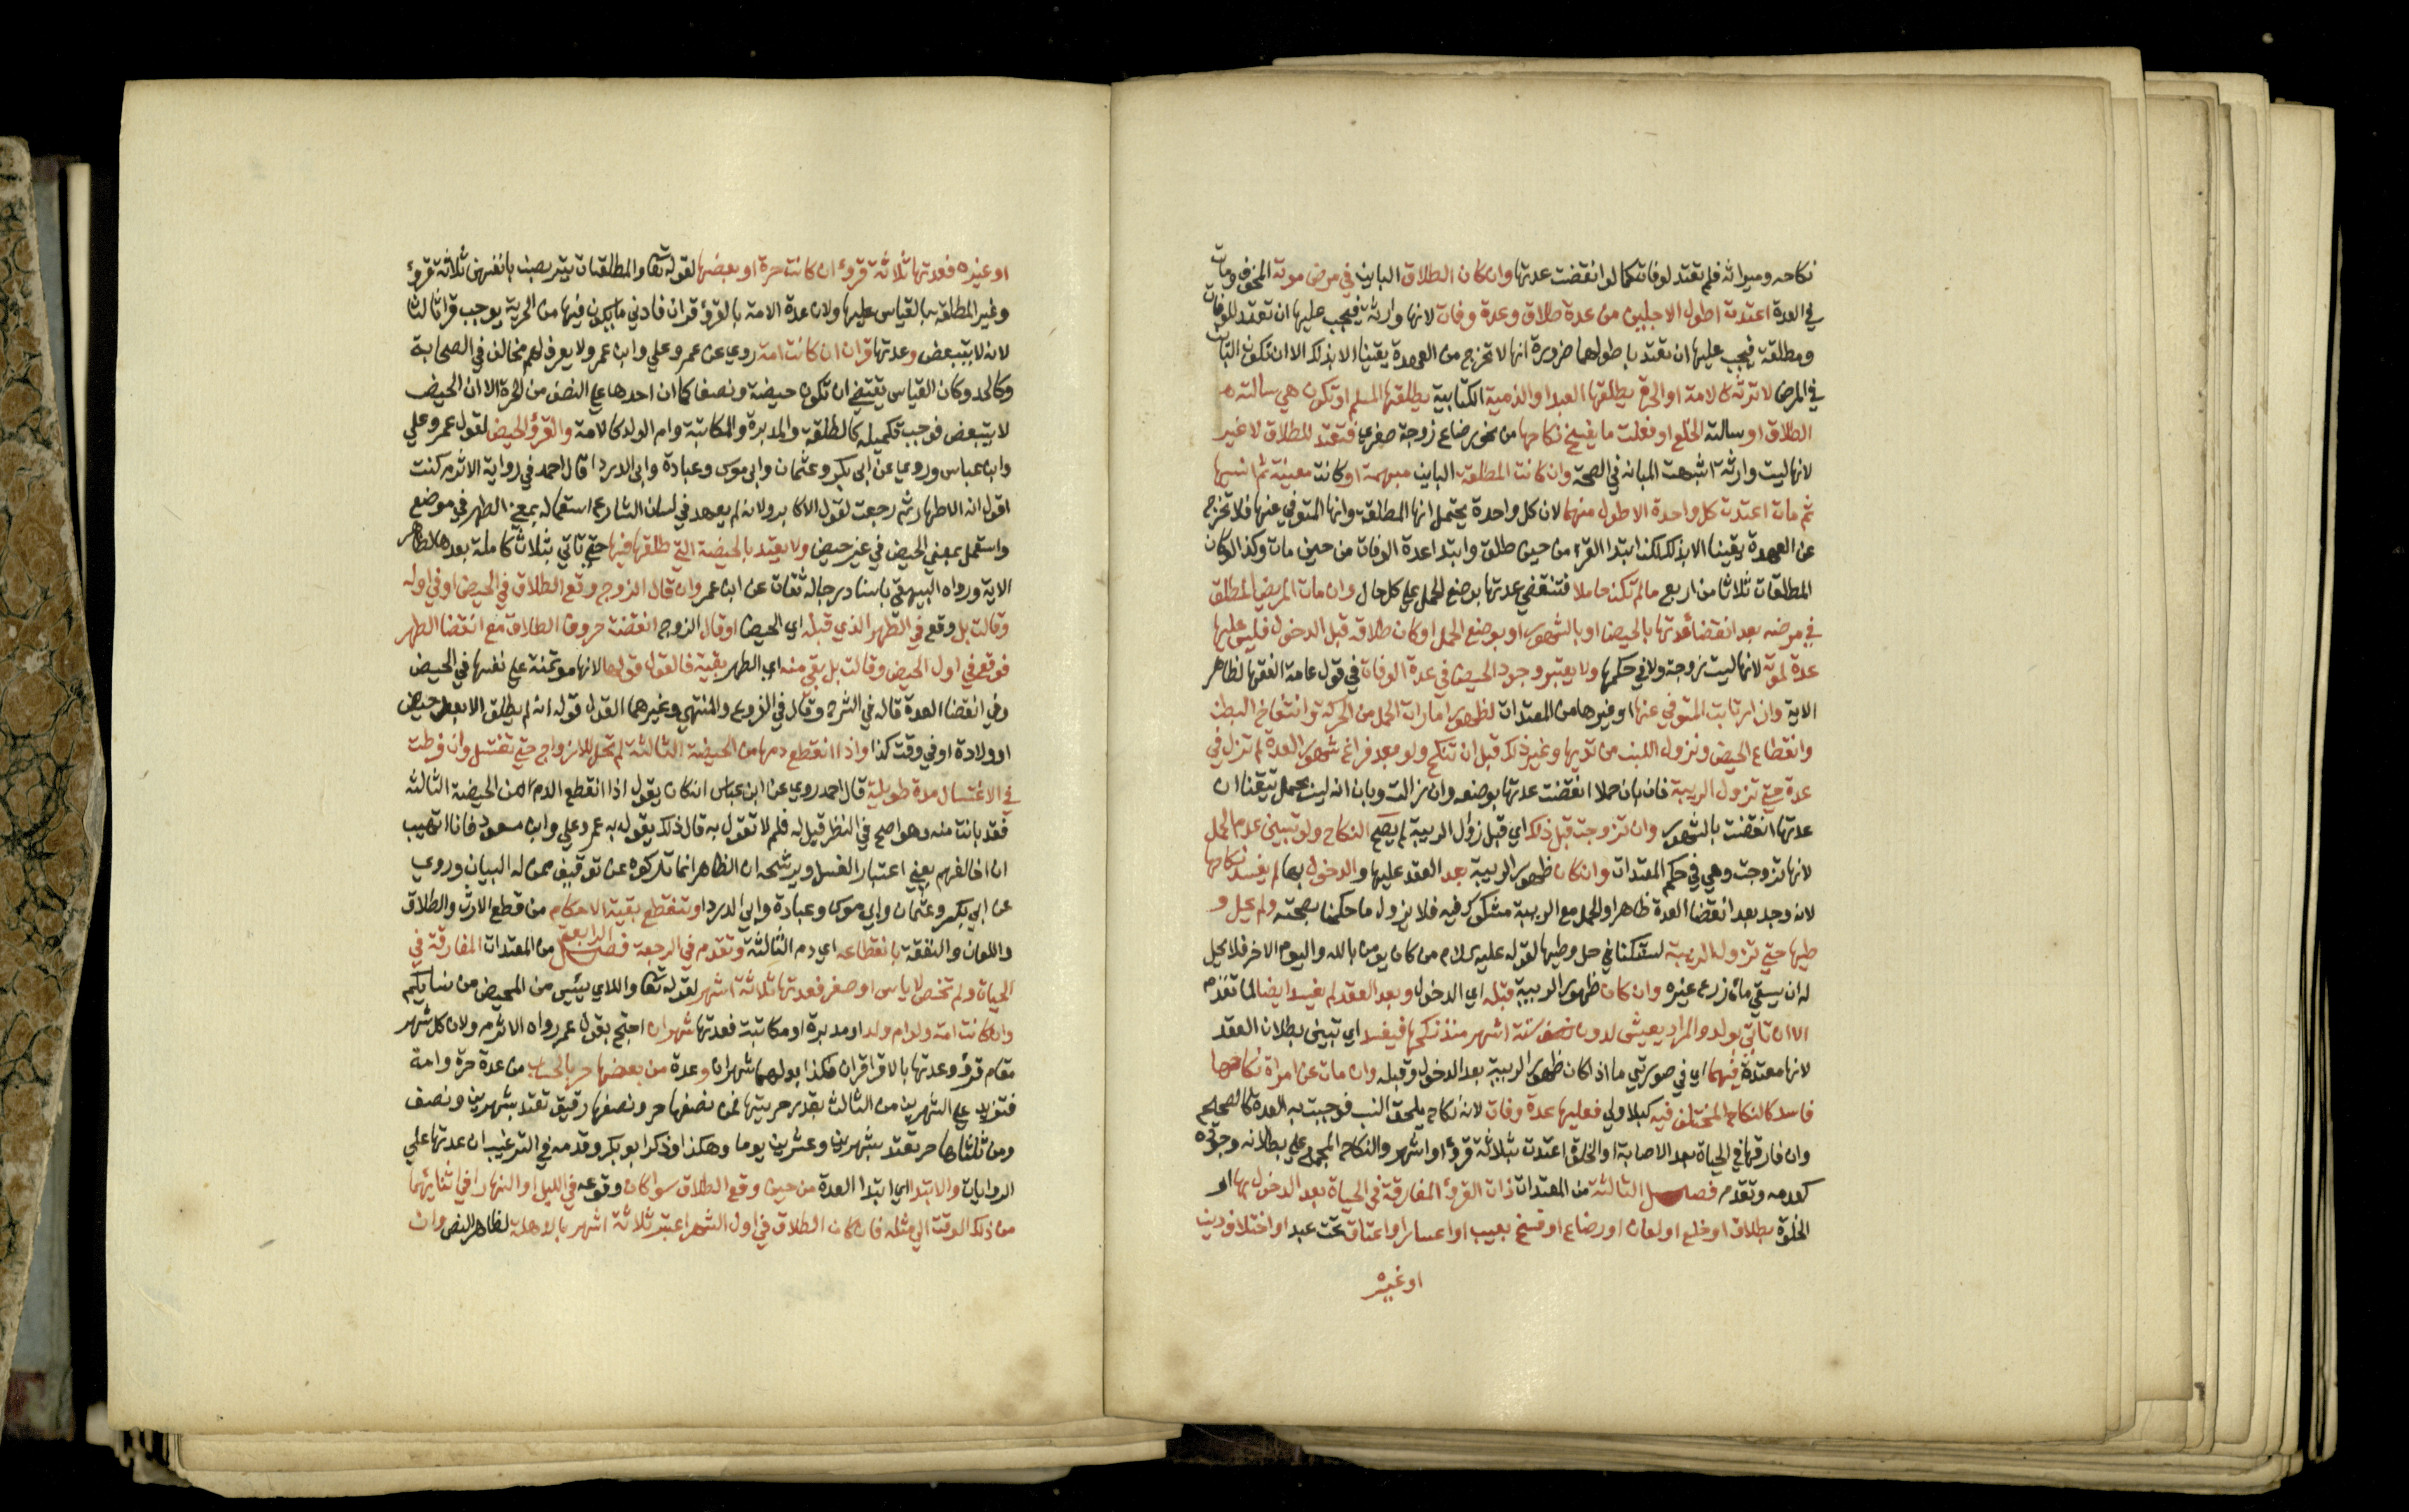 نكاحه وميراثه فلم تعتد لوفاته كما لو انقضت عدتها وان كان الطلاق الباين في مرض موته المخوف ومات
في العدة اعتدت اطول الاجلين من عدة طلاق وعدة وفاة لانها وارثة فيجب عليها ان تعتد للوفاة
ومطلقة فيجب عليها ان تعتد باطولهما ضرورة انها لا تخرج من العهدة يقينا الا بذلك الا ان تكون البات
في المرض لا ترثه كالامة او الحرة يطلقها العبد او الذمية الكتابية يطلقها المسلم او تكون هي سالته
الطلاق او سالته الخلع او فعلت ما يفسخ نكاحها من نحو رضاع زوجة صغرى فتعتد للطلاق لا غير
لانها ليست وارثة اشبهت المبانة في الصحة وان كانت المطلقة الباين مبهمة او كانت معينة ثم انسيها
ثم مات اعتدت كل واحدة الاطول منهما لان كل واحدة يحتمل انها المطلقة وانها المتوفي عنها فلا تخرج
عن العهدة يقينا الا بذلك لكن ابتدا القرء من حين طلق وابتدا عدة الوفاة من حين مات وكذا لو كان
المطلقات ثلاثا من اربع ما لم تكن حاملا فتنقضي عدتها بوضع الحمل علي كل حال وان مات المريض المطلق
في مرضه بعد انقضا عدتها بالحيض او بالشهور او بوضع الحمل او كان طلاقه قبل الدخول فليس عليها
عدة لموته لانها ليست زوجة ولا في حكمها ولا يعتبر وجود الحيض في عدة الوفاة في قول عامة الفقها لظاهر
الاية وان ارتابت المتوفي عنها او غيرها من المعتدات لظهور امارات الحمل من الحركة وانتفاخ البطن
وانقطاع الحيض ونزول اللبن من ثديها وغير ذلك قبل ان تنكح ولو بعد فراغ شهور العدة لم تزل في
عدة حتي تزول الريبة فان بان حملا انقضت عدتها بوضعه وان زالت وبان انه ليس بحمل تبينا ان
عدتها انقضت بالشهور وان تزوجت قبل ذلك اي قبل زوال الريبة لم يصح النكاح ولو تبين عدم الحمل
لانها تزوجت وهي في حكم المعتدات وان كان ظهور الريبة بعد العقد عليها والدخول بها لم يفسد نكاحها
لانه وجد بعد انقضا العدة ظاهرا والحمل مع الريبة مشكوك فيه فلا يزول ما حكمنا بصحته ولم يحل و
طيها حتي تزول الريبة لشكنا في حل وطيها لقوله عليه السلام من كان يومن بالله واليوم الاخر فلا يحل
له ان يسقي ماه زرع غيره وان كان ظهور الريبة قبله اي الدخول وبعد العقد لم يفسد ايضا لما تقدم
الا ان تاتي بولد والمراد يعيش لدون ستة اشهر منذ نكحها فيفسد اي تبين بطلان العقد
لانها معتدة فيهما اي في صورتي ما اذا كان ظهور الريبة بعد الدخول وقبله وان مات عن امراة نكاحها
فاسد كالنكاح المختلف فيه كبلا ولي فعليها عدة وفاة لانه نكاح يلحق النسب فوجبت به العدة كالصحيح
وان فارقها في الحياة بعد الاصابة او الخلوة اعتدت بثلاثة قروء او اشهر والنكاح المجمع علي بطلانه وجوده
كعدمه وتقدم فصل الثالثة من المعتدات ذات القروء المفارقة في الحياة بعد الدخول بها او
الخلوة بطلاق او خلع او لعان او رضاع او فسخ بعيب او اعسار او اعتاق تحت عبد او اختلاف دين
او غيره
او غيره فعدتها ثلاثة قروء ان كانت حرة او بعضها لقوله تعا والمطلقات يتربصن بانفسهن ثلاثة قروء
وغير المطلقة بالقياس عليها ولان عدة الامة بالقروء قران فادني ما يكون فيها من الحرية يوجب قرا ثالثا
لانه لا يتبعض وعدتها قران ان كانت امة روي عن عمر وعلي وابن عمر ولا يعرف لهم مخالف في الصحابة
وكالحد وكان القياس يقتضي ان تكون حيضة ونصفا كما ان احدها علي النصف من الحرة الا ان الحيض
لا يتبعض فوجب تكميله كالطلقة والمدبرة والمكاتبة وام الولد كالامة والقرؤ الحيض لقول عمر وعلي
وابن عباس وروي عن ابي بكر وعثمان وابي موسي وعبادة وابي الدردا قال احمد في رواية الاثرم كنت
اقول انه الاطهار ثم رجعت لقول الاكابر ولانه لم يعهد في لسان الشارع استعماله بمعني الطهر في موضع
واستعمل بمعني الحيض في غير حيض ولا يعتد بالحيضة التي طلقها فيها حتي تاتي بثلاث كاملة بعدها لظاهر
الاية ورواه البيهقي باسناد رجاله ثقات عن ابن عمر وان قال الزوج وقع الطلاق في الحيض او في اوله
وقالت بل وقع في الطهر الذي قبله اي الحيض او قال الزوج انقضت حروف الطلاق مع انقضا الطهر
فوقع في اول الحيض وقالت بل بقي منه اي الطهر بقية فالقول قولها لانها موتمنة علي نفسها في الحيض
وفي انقضا العدة قاله في الشرح وقال في الفروع والمنتهي وغيرهما القول قوله انه لم يطلق الا بعد حيض
او ولادة او في وقت كذا واذا انقطع دمها من الحيضة الثالثة لم تحل للازواج حتي تغتسل وان فرطت
في الاغتسال مدة طويلة قال احمد روي عن ابن عباس انه كان يقول اذا انقطع الدم من الحيضة الثالثة
فقد بانت منه وهو اصح في النظر قيل له فلم لا تقول به قال ذلك يقول به عمر وعلي وابن مسعود فانا اتهيب
ان اخالفهم يعني اعتبار الغسل ويرشحه ان الظاهر انما تركوه عن توقيف ممن له البيان وروي
عن ابي بكر وعثمان وابي موسي وعبادة وابي الدردا وتنقطع بقية الاحكام من قطع الارث والطلاق
واللعان والنفقة بانقطاعه اي دم الثالثة وتقدم في الرجعة فصل الرابعة من المعتدات المفارقة في
الحياة ولم تحض لاياس او صغر فعدتها ثلاثة اشهر لقوله تعا واللاي ييسن من المحيض من نسايكم
وان كانت امة ولو ام ولد او مدبرة او مكاتبة فعدتها شهران احتج بقول عمر رواه الاثرم ولان كل شهر
مقام قرء وعدتها بالاقرا قران فكذا بدلهما شهران وعدة من بعضها حر بالحساب من عدة حرة وامة
فتزيد علي الشهرين من الثالث بقدر حريتها فمن نصفها حر ونصفها رقيق تعتد بشهرين ونصف
ومن ثلثاها حر تعتد بشهرين وعشرين يوما وهكذا وذكر ابو بكر وقدمه في الترغيب ان عدتها علي
الروايات والابتدا اي ابتدا العدة من حين وقع الطلاق سوا كان وقوعه في الليل او النهار او في اثنايهما
من ذلك الوقت الي مثله فان كان الطلاق في اول الشهر اعتبر ثلاثة اشهر بالاهلة لظاهر النص وان